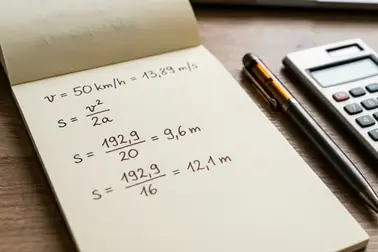 v = 50 km/h = 13,89 m/s
s = v²/2a
s = 192,9/20 = 9,6 m
s = 192,9/16 = 12,1 m